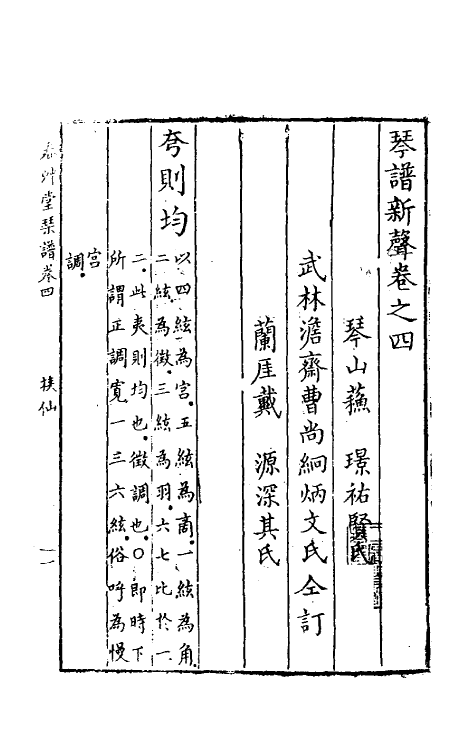 琴譜新聲卷之四
琴山蘓　璟祐賢氏
武林澹齋曹尚絅炳文氏仝訂
蘭厓戴　源深其氏
夸則均
以四絃為宮。五絃為商。一絃為角。
二絃為徵。三絃為羽。六七比於一
二。此夷則均也。徵調也。○即時下
所謂正調寬一三六絃。俗呼為慢
宮
調。
春艸堂琴譜卷四
挾仙
一